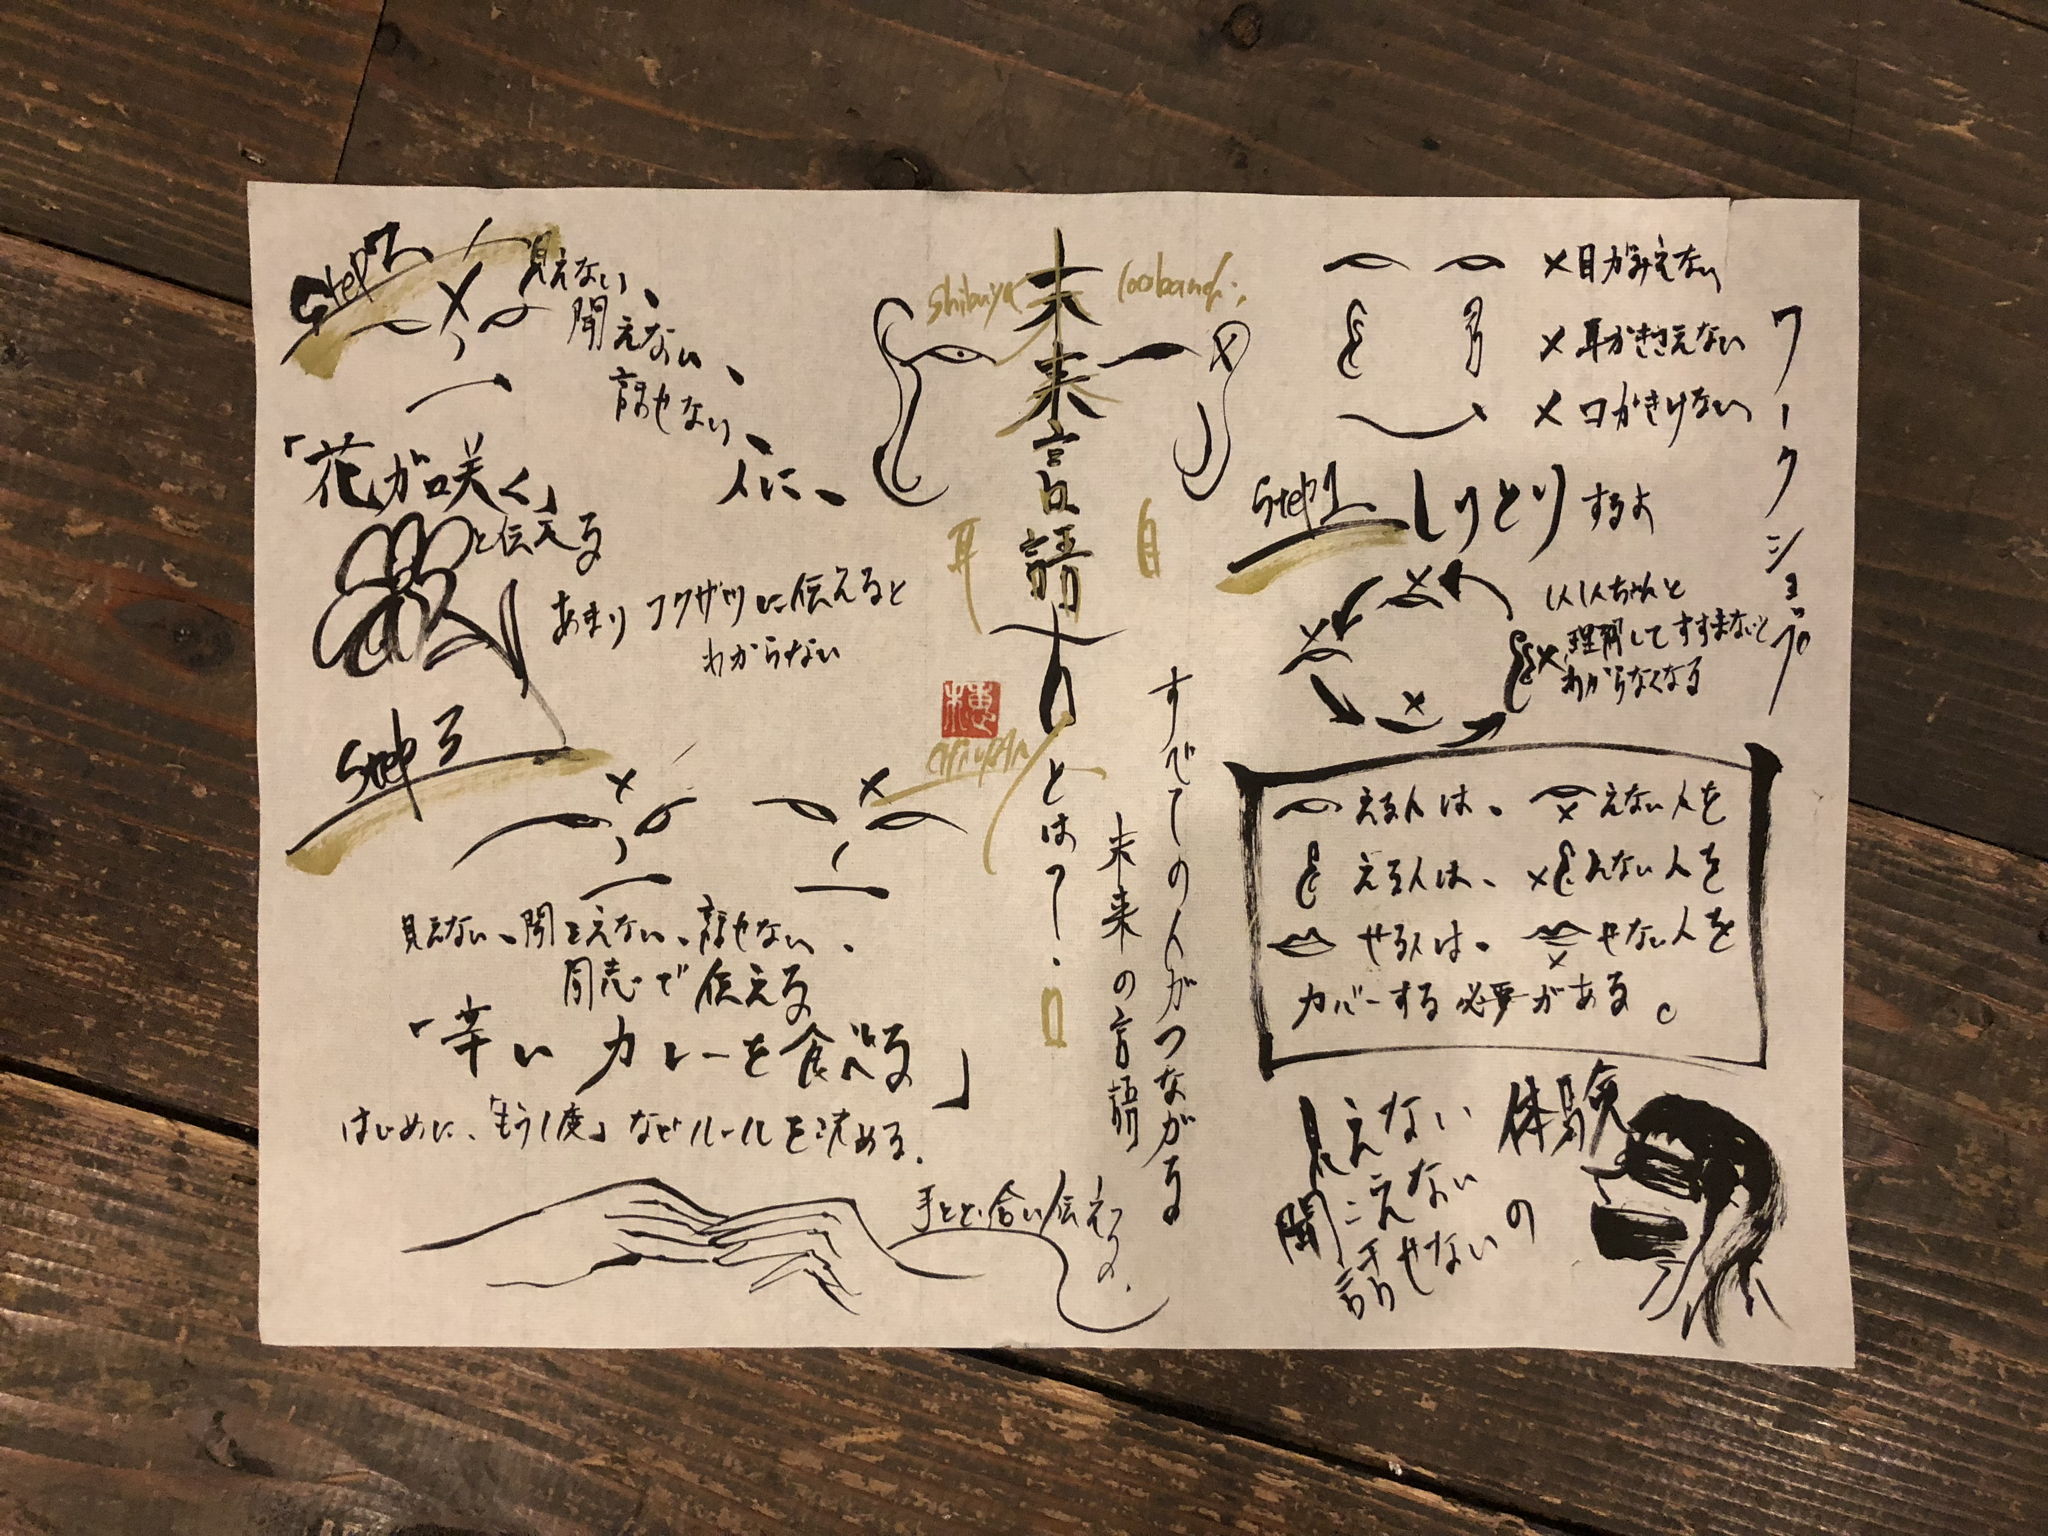 未来言語
とは?
すべての人がつながる
未来の言語
shibuya
100banch
耳
目
口
穂
ワークショップ
×目がみえない
×耳がきこえない
×口がきけない
Step1
しりとりするよ
理解してすすまないと
わからなくなる
える人は、えない人を
える人は、えない人を
せる人は、せない人を
カバーする必要がある。
見えない
聞こえない
話せない
の
体験
Step2
見えない、
聞えない、
話せない、
人に、
「花が咲く」
と伝える
あまりフクザツに伝えると
わからない
Step3
見えない、聞こえない、話せない、
同志で伝える
「辛いカレーを食べる」
はじめに、「もう1度」などルールを決める。